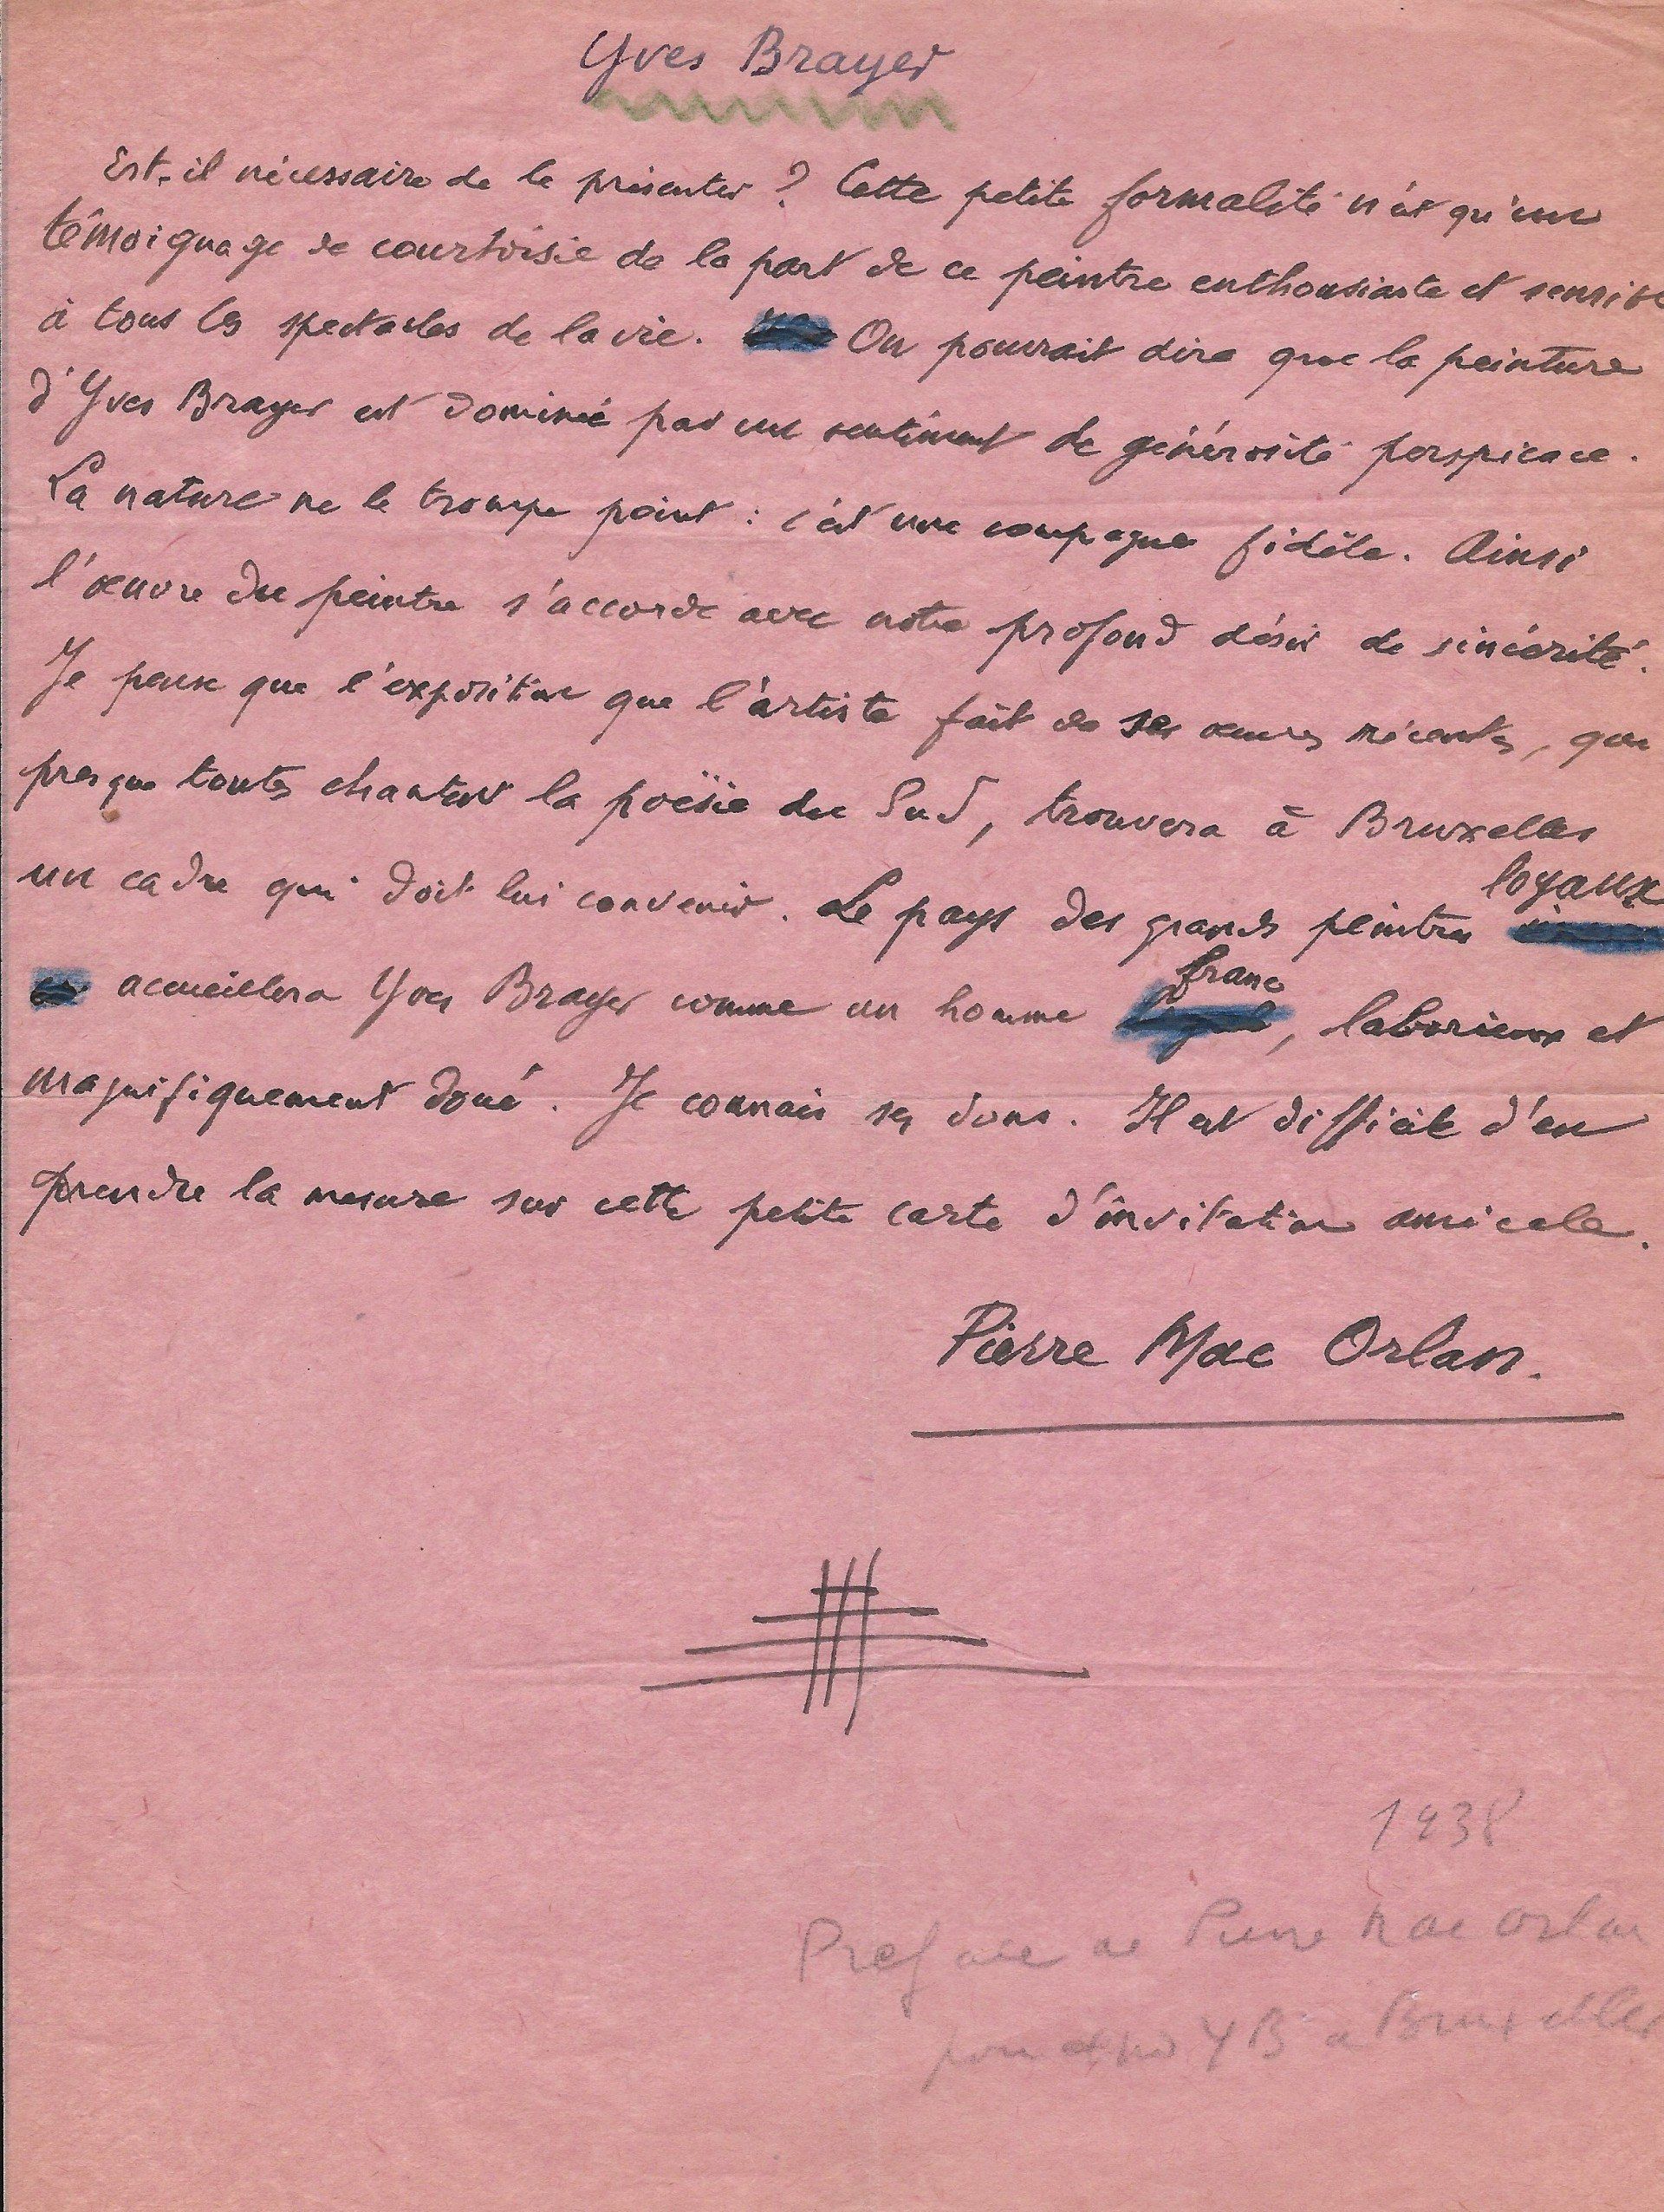 Yves Brayer
Est-il nécessaire de le présenter ? Cette petite formalité n'est qu'un
témoignage de courtoisie de la part de ce peintre enthousiaste et sensible
à tous les spectacles de la vie. On pourrait dire que la peinture
d'Yves Brayer est dominée par un sentiment de générosité perspicace.
La nature ne le trompe point : c'est une compagne fidèle. Ainsi
l'œuvre du peintre s'accorde avec notre profond désir de sincérité.
Je pense que l'exposition que l'artiste fait de ses œuvres récentes, que
presque toutes chantent la poësie du Sud, trouvera à Bruxelles
un cadre qui doit lui convenir. Le pays des grands peintres loyaux
accueillera Yves Brayer comme un homme franc, laborieux et
magnifiquement doué. Je connais ses dons. Il est difficile d'en
prendre la mesure sur cette petite carte d'invitation amicale.
Pierre Mac Orlan.
1938
Preface de Pierre Mac Orlan
pour expo YB a Bruxelles